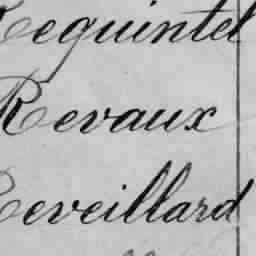 Requintel
Revaux
Reveillard